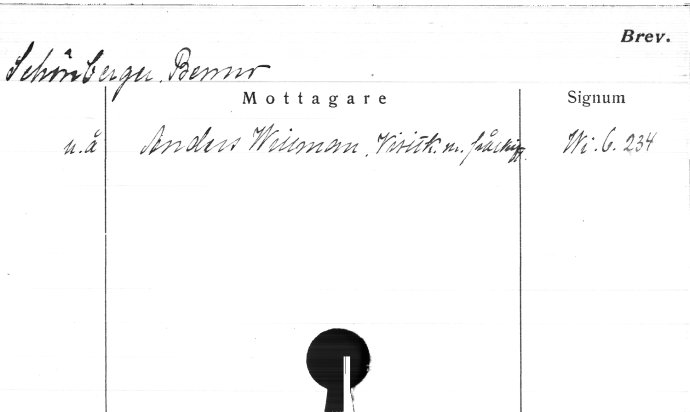 Brev.
Schönberger, Benno
Mottagare
Signum
u.å Anders Wiiman, Visitk. m. Wi. 6. 234